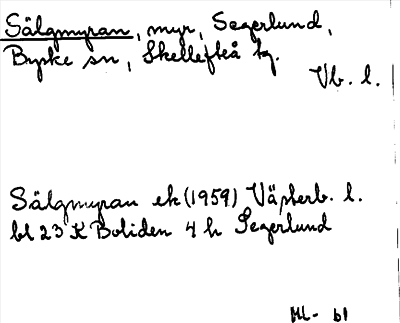 Sälgmyran, myr, Segerlund,
Byske sn, Skellefteå tg.
Vb. l.
Sälgmyran ek (1959) Västerb. l.
bl 23 K Boliden 4 h Segerlund
bl